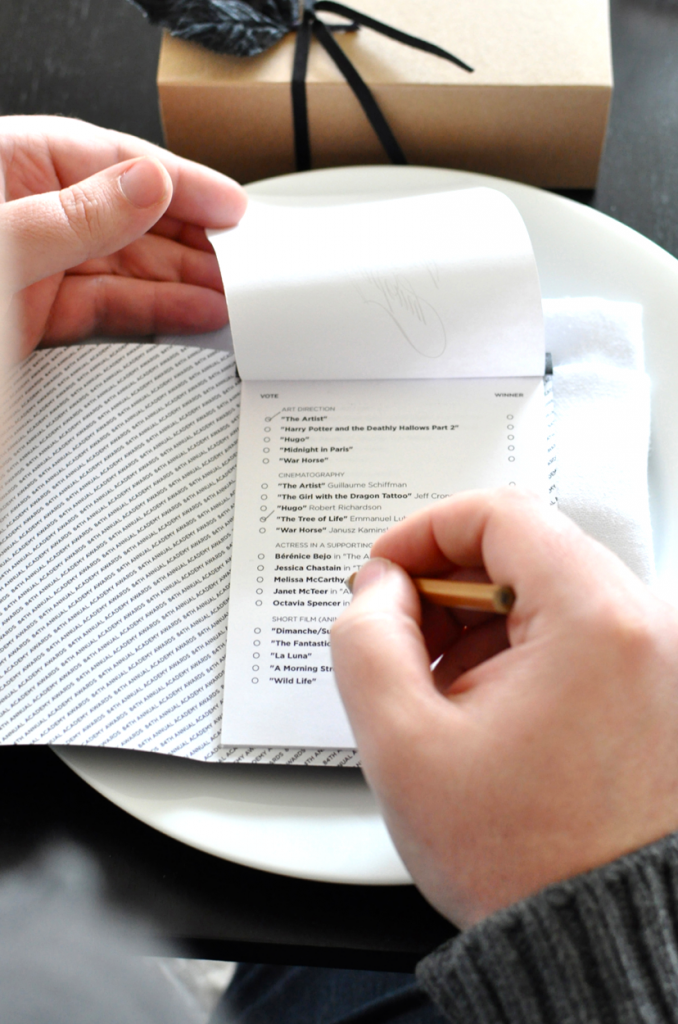 VOTE WINNER
ART DIRECTION
"The Artist"
"Harry Potter and the Deathly Hallows Part 2"
"Hugo"
"Midnight in Paris"
"War Horse"
CINEMATOGRAPHY
"The Artist" Guillaume Schiffman
"The Girl with the Dragon Tattoo" Jeff Cron
"Hugo" Robert Richardson
"The Tree of Life" Emmanuel Lu
"War Horse" Janusz Kamins
ACTRESS IN A SUPPORTING
Bérénice Bejo in "The A
Jessica Chastain in "T
Melissa McCarthy,
Janet McTeer in "A
Octavia Spencer in
SHORT FILM (ANI
"Dimanche/Su
"The Fantastic
"La Luna"
"A Morning Str
"Wild Life"
84TH ANNUAL ACADEMY AWARDS